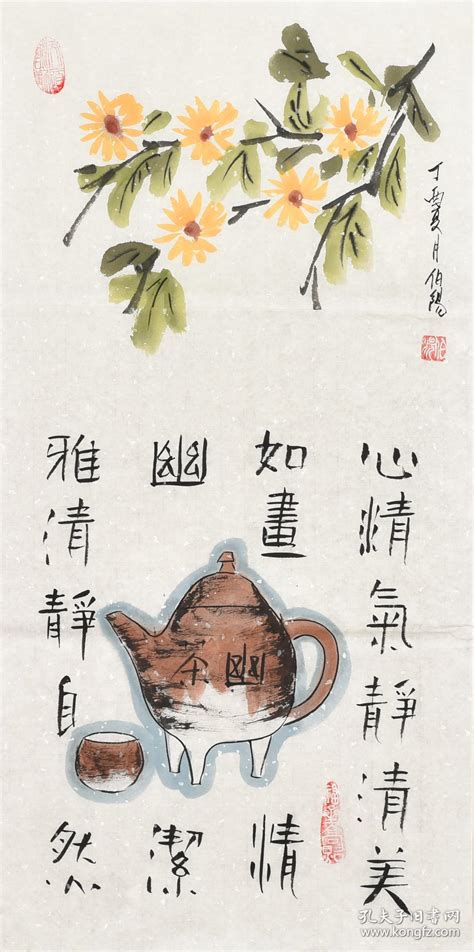 丁酉夏月伯陽
心精氣靜清美
如畫情
幽潔
雅清靜自然
幽茶
孔夫子旧书网
www.kongfz.com